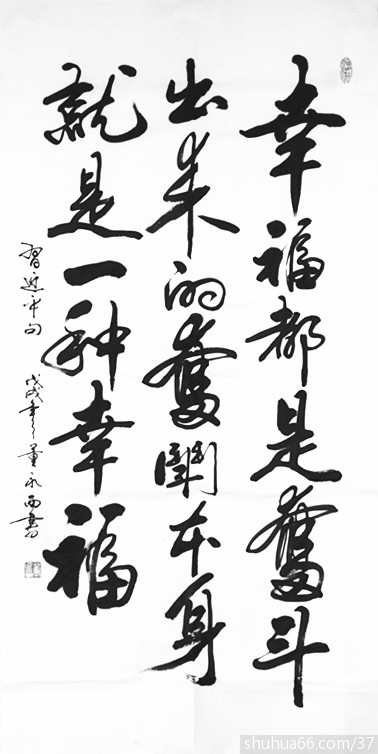 幸福都是奮斗
出来的奮鬪本身
就是一种幸福
習近平句
戊戌年董永西書
shuhua66.com/37